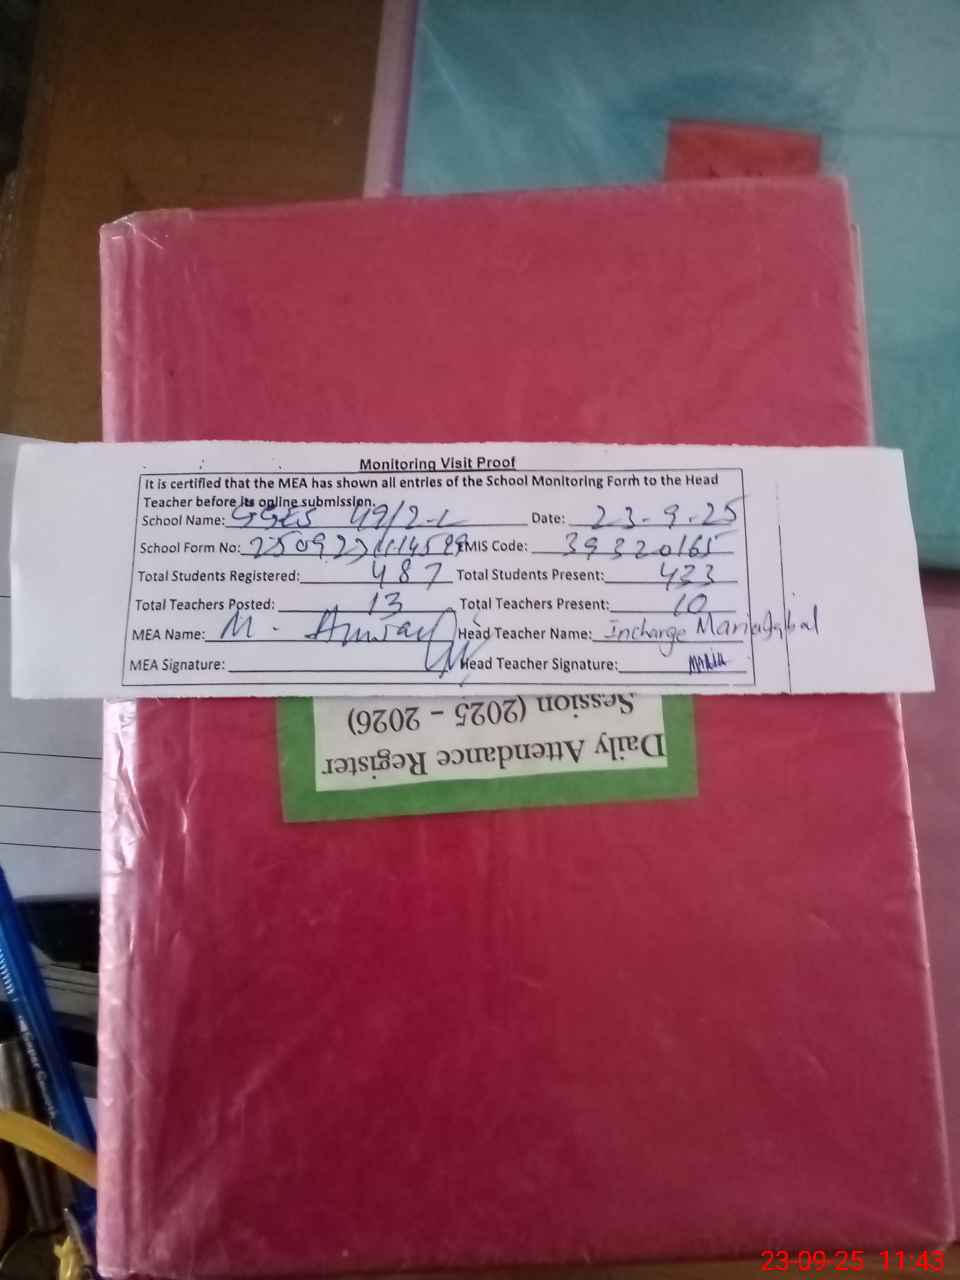 Monitoring Visit Proof
It is certified that the MEA has shown all entries of the School Monitoring Form to the Head
Teacher before its online submission.
School Name: GGES 49/2-L Date: 23-9-25
School Form No: EMIS Code: 39320165
Total Students Registered: 487 Total Students Present: 433
Total Teachers Posted: 13 Total Teachers Present: 10
MEA Name: M. Head Teacher Name: Incharge Maria Iqbal
MEA Signature: Head Teacher Signature: Maria
Daily Attendance Register
Session (2025 - 2026)
23-09-25 11:43